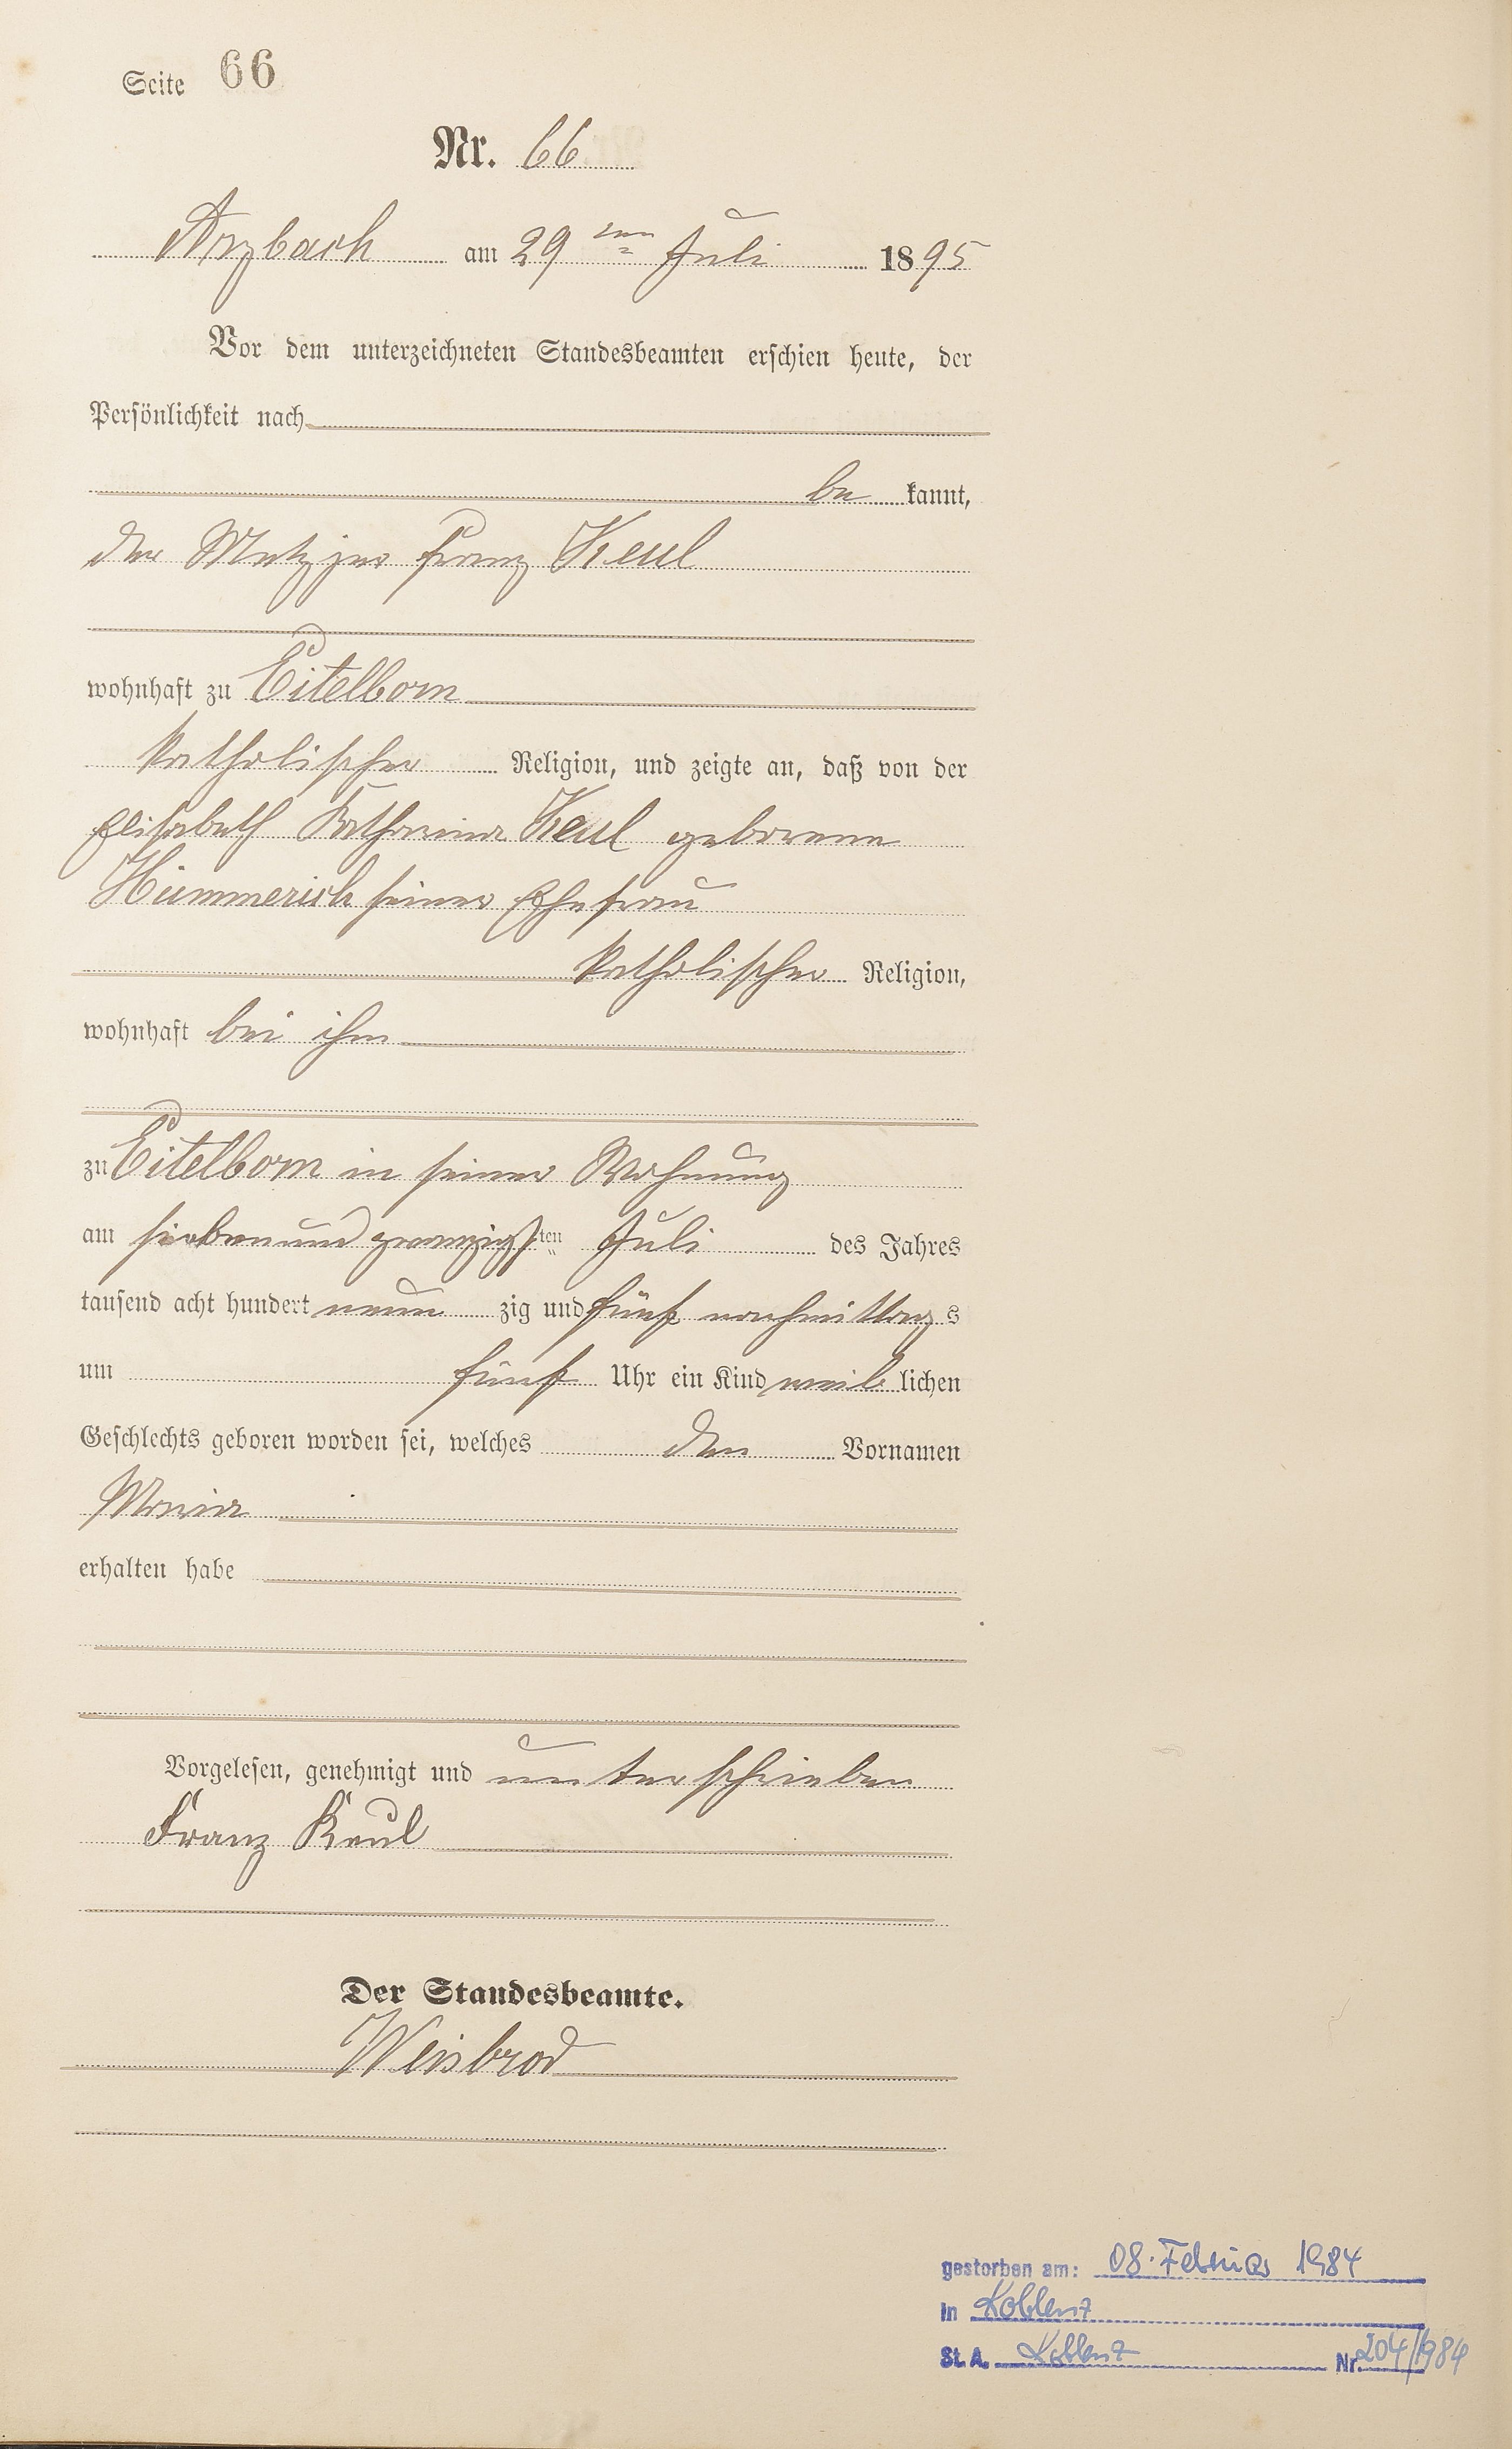 Seite 66
Nr. 66
Arzbach am 29ten Juli 1895
Vor dem unterzeichneten Standesbeamten erschien heute, der
Persönlichkeit nach
be kannt,
der Metzger Franz Keul
wohnhaft zu Eitelborn
katholischer Religion, und zeigte an, daß von der
Elisabeth Katharina Keul geborene
Hümmerich seiner Ehefrau
katholischer Religion,
wohnhaft bei ihm
zu Eitelborn in seiner Wohnung
am siebenundzwanzigsten Juli des Jahres
tausend acht hundert neun zig und fünf nachmittags
um fünf Uhr ein Kind weib lichen
Geschlechts geboren worden sei, welches den Vornamen
Maria
erhalten habe
Vorgelesen, genehmigt und unterschrieben
Franz Keul
Der Standesbeamte.
Weisbrod
gestorben am: 08. Februar 1984
in Koblenz
St. A. Koblenz Nr. 204/1984